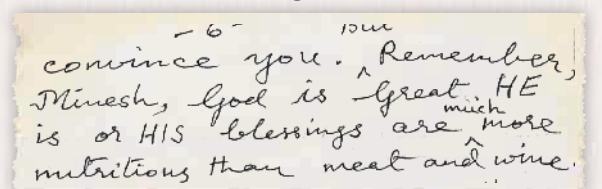 - 6 -
convince you. Remember,
Minesh, God is our Great. HE
is or HIS blessings are much more
nutritious than meat and wine.